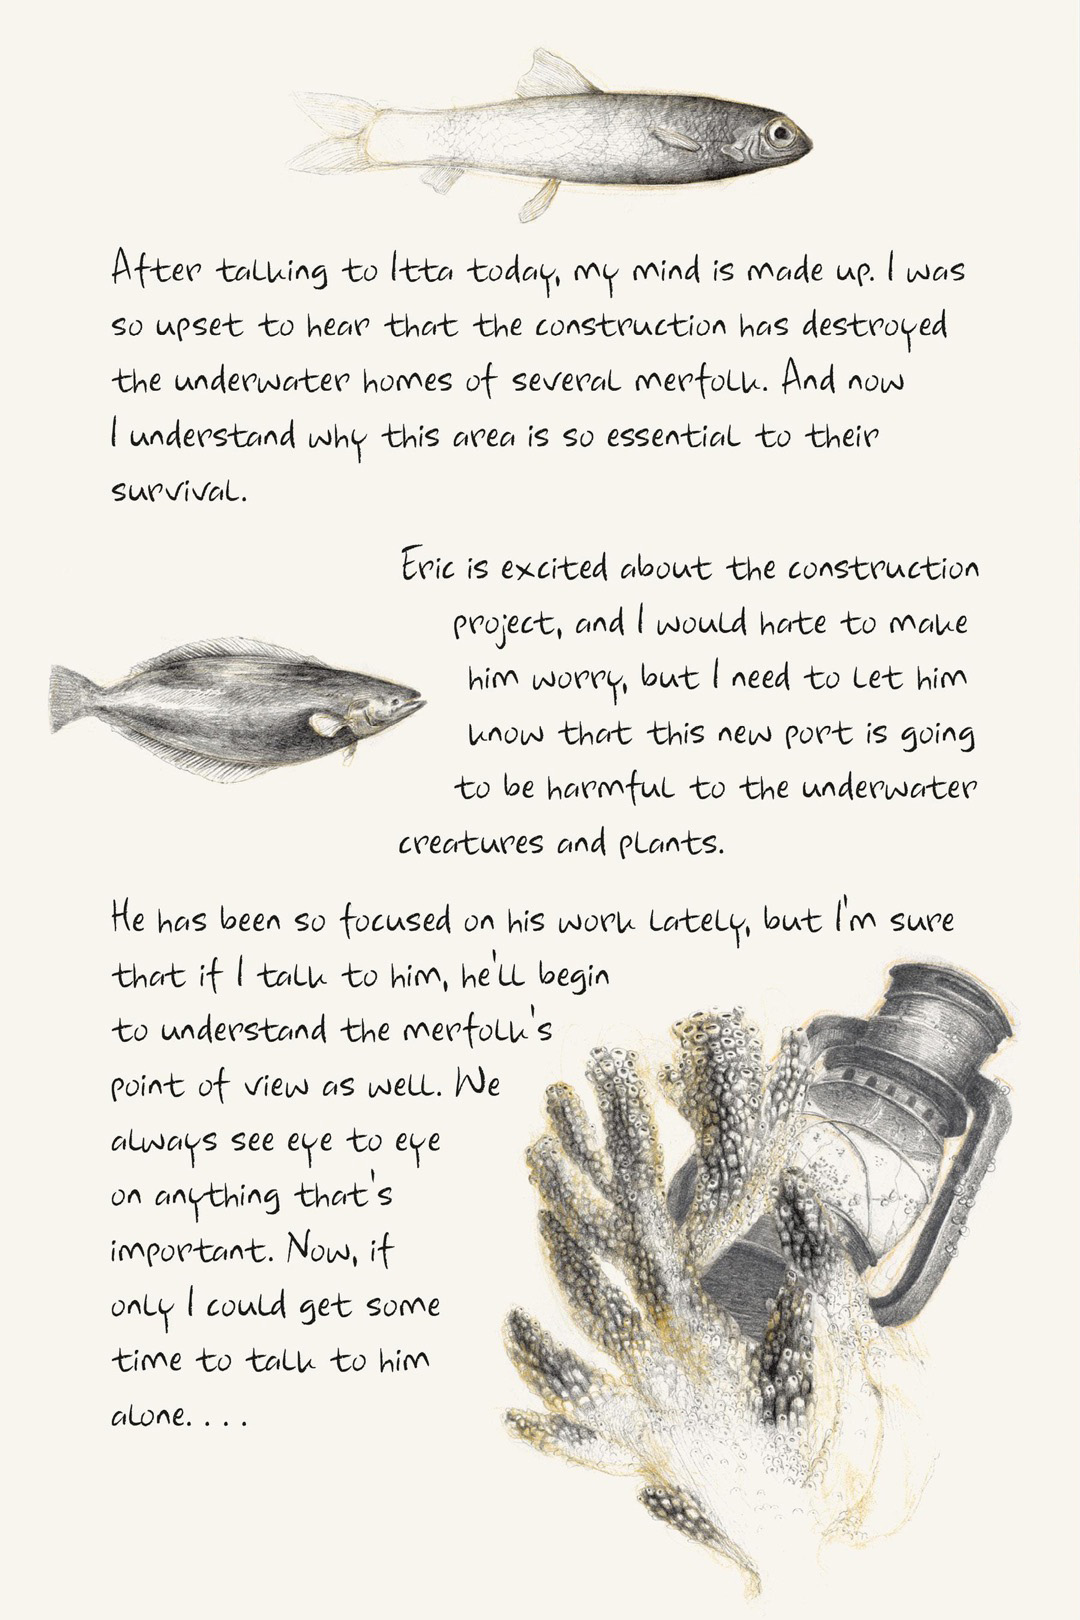 After talking to Itta today, my mind is made up. I was
so upset to hear that the construction has destroyed
the underwater homes of several merfolk. And now
I understand why this area is so essential to their
survival.
Eric is excited about the construction
project, and I would hate to make
him worry, but I need to let him
know that this new port is going
to be harmful to the underwater
creatures and plants.
He has been so focused on his work lately, but I'm sure
that if I talk to him, he'll begin
to understand the merfolk's
point of view as well. We
always see eye to eye
on anything that's
important. Now, if
only I could get some
time to talk to him
alone. . . .